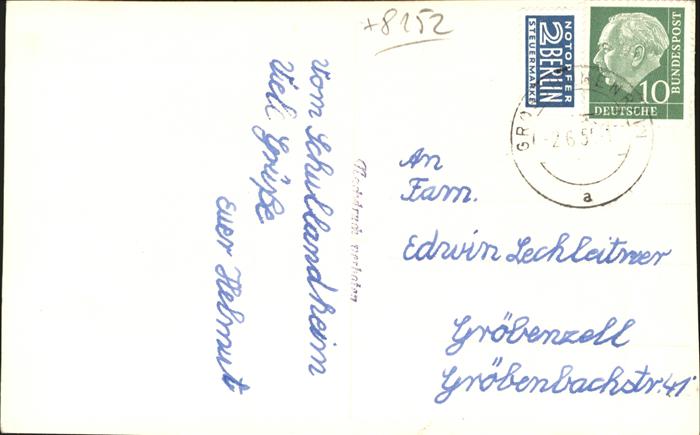 +8152
NOTOPFER
2 BERLIN
STEUERMARKE
DEUTSCHE
BUNDESPOST
10
-2.6.5
a
vom Schullandheim
viel Grüße
euer Helmut
Nachdruck verboten
An
Fam.
Edwin Lechleitner
Gröbenzell
Gröbenbachstr. 41